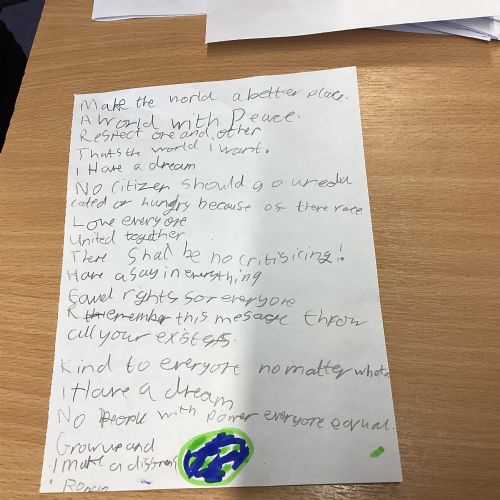 Make the world a better place.
A World with Peace.
Respect one and other
Thats the world I want.
I Have a dream
No Citizen should go unedu
cated or hungry because of there race
Love everyone
United together
There Shall be no critisicing!
Have a say in everything
Equal rights for everyone
Remember this message throw
all your existens.
Kind to everyone no matter what.
I Have a dream
No People with power everyone equal.
Grow up and
I make a